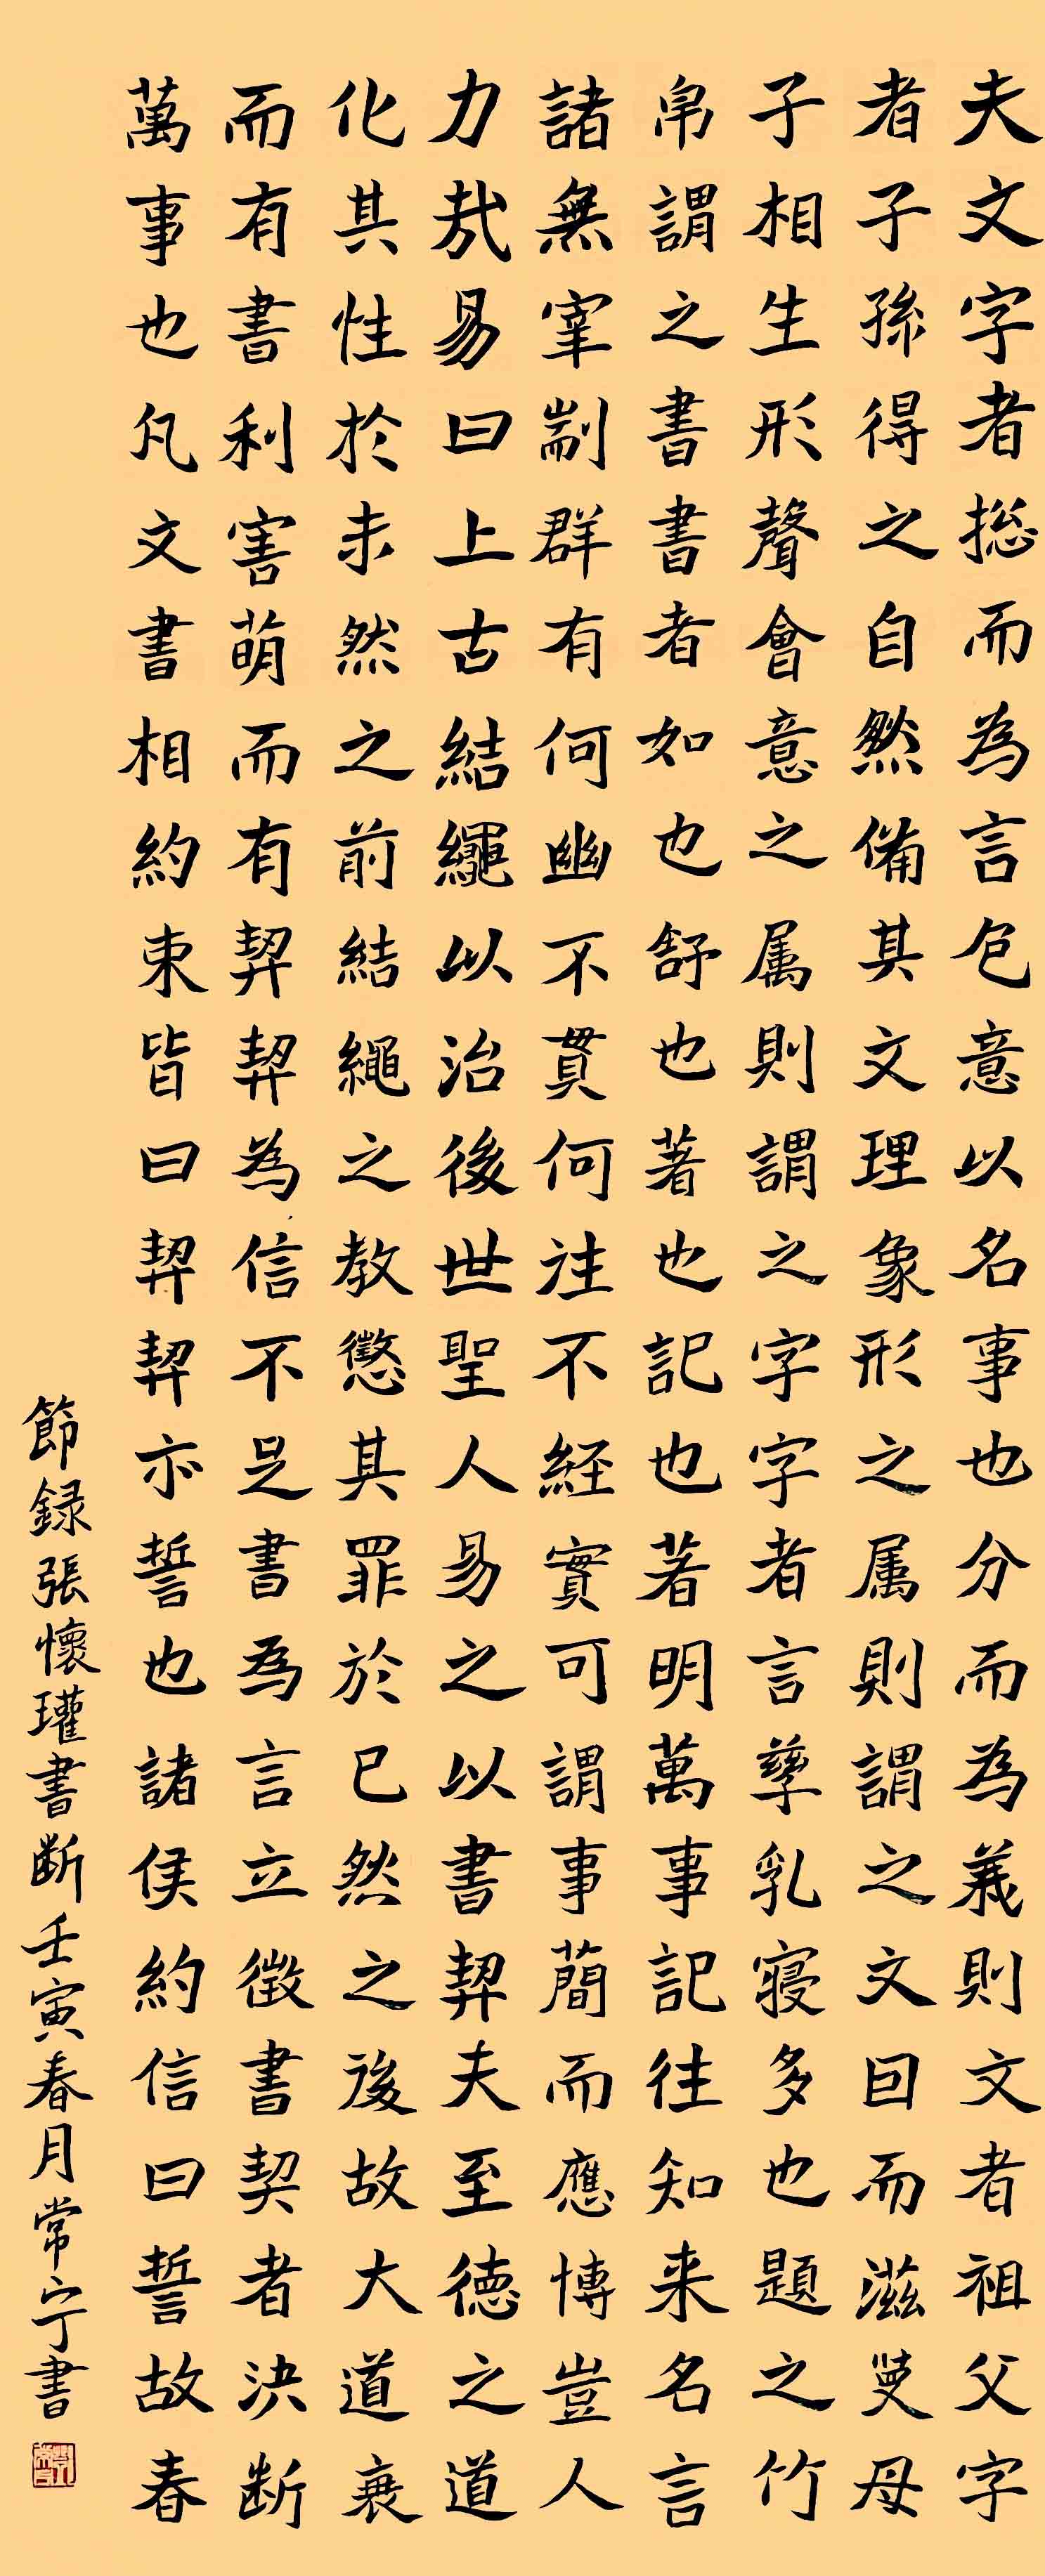 夫文字者捴而為言包意以名事也分而為義則文者祖父字
者子孫得之自然備其文理象形之属則謂之文囙而滋蔓母
子相生形聲會意之属則謂之字字者言孳乳寝多也題之竹
帛謂之書書者如也舒也著也記也著明萬事記往知来名言
諸無宰剬群有何幽不貫何往不経實可謂事簡而應博豈人
力哉易曰上古結繩以治後世聖人易之以書契夫至徳之道
化其性於未然之前結繩之教懲其罪於已然之後故大道衰
而有書利害萌而有契契為信不足書為言立徴書契者決断
萬事也凡文書相約束皆曰契契亦誓也諸侯約信曰誓故春
節録張懷瓘書断壬寅春月常宁書